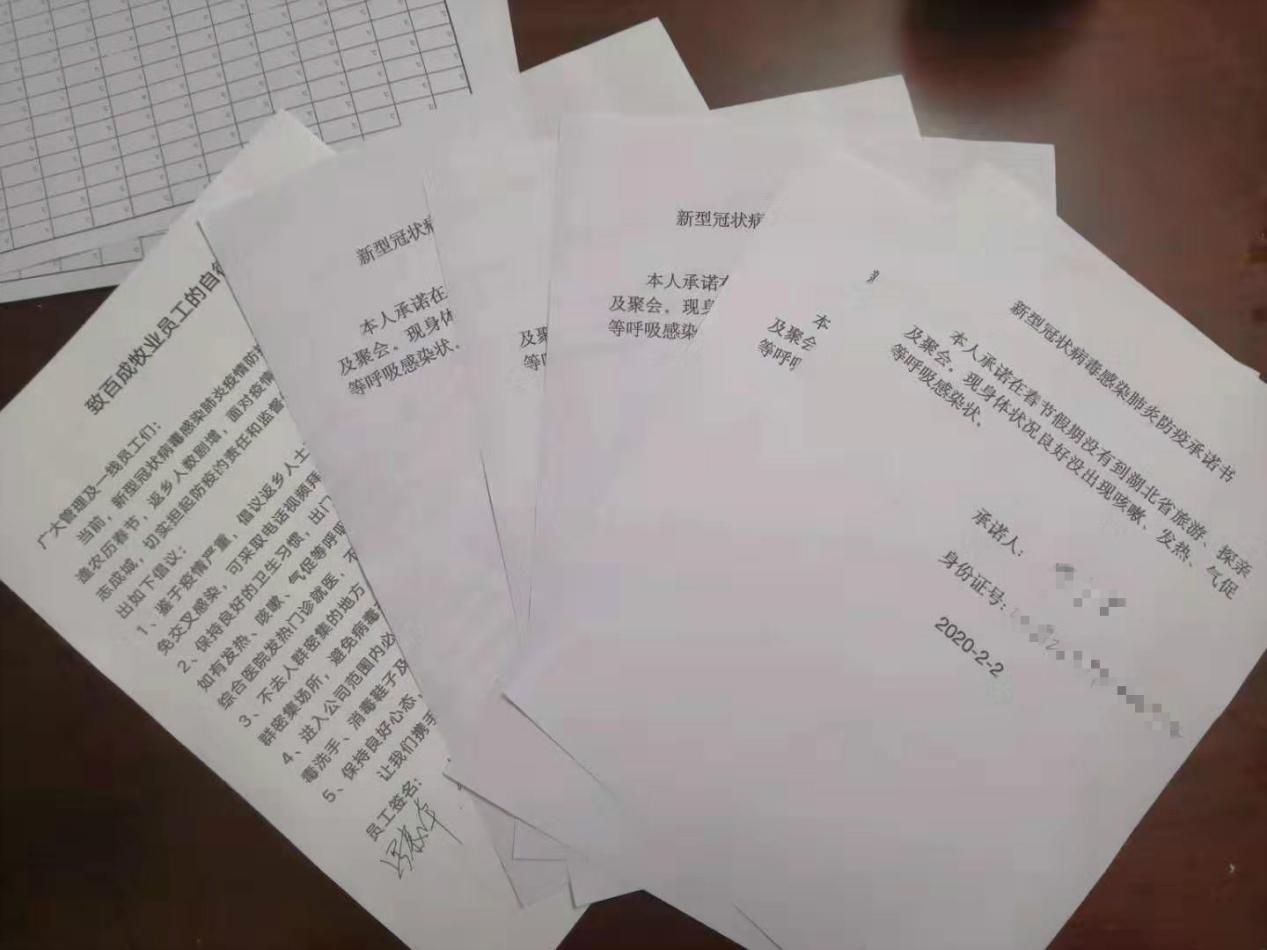 致百成牧业员工的自
广大管理及一线员工们：
当前，新型冠状病毒感染肺炎疫情防
逢农历春节，返乡人数剧增，面对疫情
志成城，切实担起防疫的责任和监督
出如下倡议：
1、鉴于疫情严重，倡议返乡人士
免交叉感染，可采取电话视频拜
2、保持良好的卫生习惯，出门
如有发热、咳嗽、气促等呼吸
综合医院发热门诊就医，不
3、不去人群密集的地方
群密集场所，避免病毒
4、进入公司范围内必
毒洗手、消毒鞋子及
5、保持良好心态、
让我们携手
员工签名：
新型冠状病
本人承诺在
及聚会。现身体
等呼吸感染状.
及聚
等呼
新型冠状病
本人承诺在
及聚会。现身
等呼吸感染
本
及聚会
等呼
新型冠状病毒感染肺炎防疫承诺书
本人承诺在春节假期没有到湖北省旅游、探亲
及聚会。现身体状况良好没出现咳嗽、发热、气促
等呼吸感染状.
承诺人：
身份证号：
2020-2-2